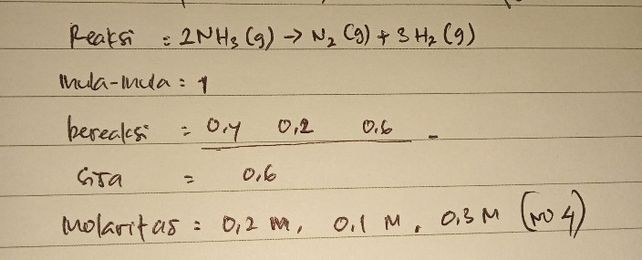 Reaksi = 2NH₃ (g) → N₂ (g) + 3H₂ (g)
Mula-mula = 1
bereaksi = 0,4 0,2 0.6 -
Sisa = 0,6
Molaritas = 0,2 M, 0,1 M, 0,3 M (NO 4)